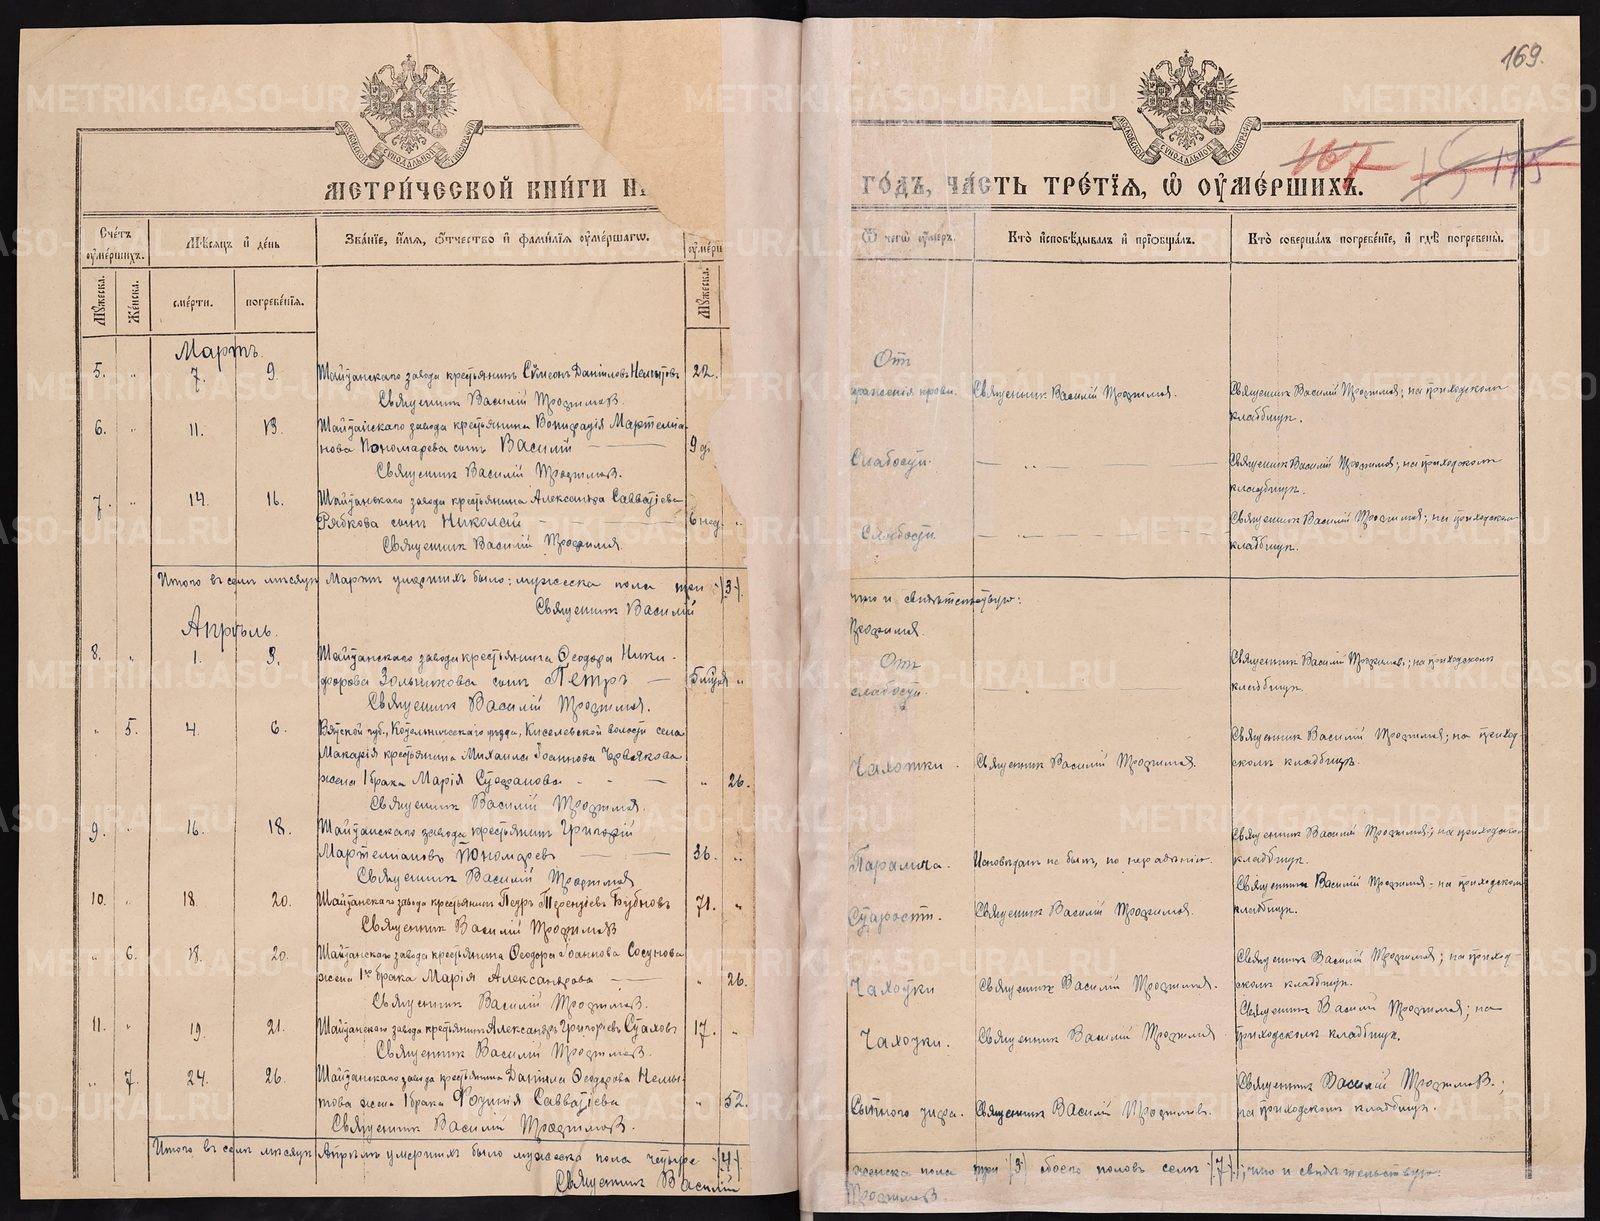 169.
167
175
МЕТРИ́ЧЕСКОЙ КНИ́ГИ Н
ГО́ДЪ, ЧА́СТЬ ТРЕ́ТІѦ, Ѽ ОУ҆МЕ́РШИХЪ.
Сче́тъ оу҆ме́ршихъ.
Мѣ́сяцъ и҆ де́нь
Зва́нїе, и҆́мя, ѻ҆́тчество и҆ фами́лїя оу҆ме́ршагѡ.
Ѿ чегѡ̀ оу҆́меръ.
Кто̀ и҆сповѣ́дывалъ и҆ прїѡбща́лъ.
Кто̀ соверша́лъ погребе́нїе, и҆ гдѣ̀ погребены̀.
Мꙋ́жеска.
Же́нска.
сме́рти.
погребе́нїя.
Мꙋ́жеска.
Мартъ.
5. " 7. 9. Шайтанскаго завода крестьянинъ Сѵмеонъ Даніиловъ Немытовъ 22.
Священникъ Василій Трофимовъ.
От
Священникъ Василій Трофимовъ.
Священникъ Василій Трофимовъ; на приходскомъ
кладбищѣ.
6. " 11. 13. Шайтанскаго завода крестьянина Вонифатія Мартемья-
нова Пономарева сынъ Василій 9 д.
Священникъ Василій Трофимовъ.
Слабости.
Священникъ Василій Трофимовъ; на приходскомъ
кладбищѣ.
7. " 14. 16. Шайтанскаго завода крестьянина Александра Савватіева
Рябкова сынъ Николай 6 нед. "
Священникъ Василій Трофимовъ.
Слабости
Священникъ Василій Трофимовъ; на приходскомъ
кладбищѣ.
Итого въ семъ мѣсяцѣ Мартѣ умершихъ было: мужеска пола три (3)
Священникъ Василій
что и свидѣтельствую:
Трофимовъ.
Апрѣль.
8. " 1. 3. Шайтанскаго завода крестьянина Ѳеодора Ники-
форова Зольникова сынъ Петръ "
Священникъ Василій Трофимовъ.
Отъ
слабости.
Священникъ Василій Трофимовъ; на приходскомъ
кладбищѣ.
" 5. 4. 6. Вятской губ., Котельническаго уѣзда, Киселевской волости села
Макарія крестьянина Михаила Іоаннова Червякова
жена 1 брака Марія Стефанова " 26.
Священникъ Василій Трофимовъ.
Чахотки.
Священникъ Василій Трофимовъ
Священникъ Василій Трофимовъ; на приход-
скомъ кладбищѣ.
9. " 16. 18. Шайтанскаго завода крестьянинъ Григорій
Мартемиановъ Пономаревъ 36. "
Священникъ Василій Трофимовъ
Паралича.
Исповѣданъ не былъ, по нерадѣнію.
Священникъ Василій Трофимовъ; на приходскомъ
кладбищѣ.
10. " 18. 20. Шайтанскаго завода крестьянинъ Петръ Терентіевъ Бубновъ 71. "
Священникъ Василій Трофимовъ
Старости.
Священникъ Василій Трофимовъ.
Священникъ Василій Трофимовъ - на приходскомъ
кладбищѣ.
" 6. 18. 20. Шайтанскаго завода крестьянина Ѳеодора Іоаннова Сосунова
жена 1го брака Марія Александрова " 26.
Священникъ Василій Трофимовъ.
Чахотки
Священникъ Василій Трофимовъ.
Священникъ Василій Трофимовъ; на приход-
скомъ кладбищѣ.
11. " 19. 21. Шайтанскаго завода крестьянинъ Александръ Григорьевъ Стаховъ 17. "
Священникъ Василій Трофимовъ.
Чахотки.
Священникъ Василій Трофимовъ
Священникъ Василій Трофимовъ; на
приходскомъ кладбищѣ.
" 7. 24. 26. Шайтанскаго завода крестьянина Даніила Ѳеодорова Немы-
това жена 1 брака Фотинія Савватіева " 52.
Священникъ Василій Трофимовъ.
Сыпного тифа.
Священникъ Василій Трофимовъ.
Священникъ Василій Трофимовъ;
на приходскомъ кладбищѣ.
Итого въ семъ мѣсяцѣ Апрѣлѣ умершихъ было мужеска пола четыре (4)
Священникъ Василій
женска пола три (3) обоего половъ семь (7); что и свидѣтельствую:
Трофимовъ
METRIKI.GASO-URAL.RU